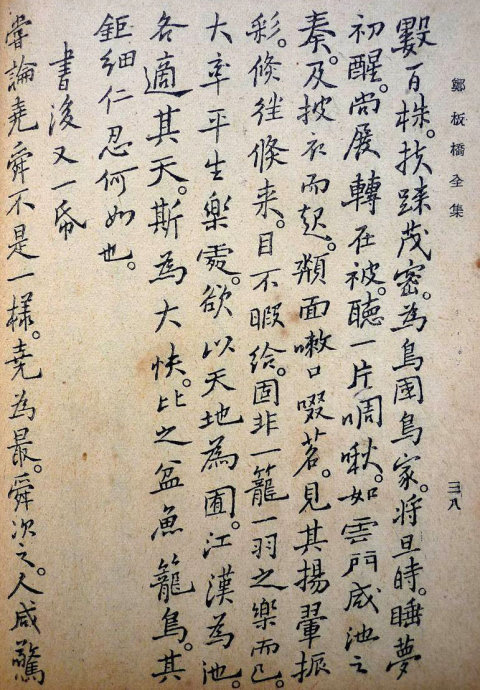 鄭板橋全集
三八
數百株。扶踈茂密。為鳥國鳥家。將旦時。睡夢
初醒。尚展轉在被。聽一片啁啾。如雲門咸池之
奏。及披衣而起。頮面嗽口啜茗。見其揚翬振
彩。倐徃倐来。目不暇給。固非一籠一羽之樂而已。
大率平生樂處。欲以天地為囿。江漢為池。
各適其天。斯為大快。比之盆魚籠鳥。其
鉅細仁忍何如也。
書後又一帋
嘗論堯舜不是一樣。堯為最。舜次之。人咸驚